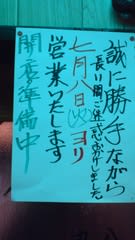 誠に勝手ながら
長い間ご迷惑お介しました
七月八日(火)ヨリ
営業いたします
開店準備中